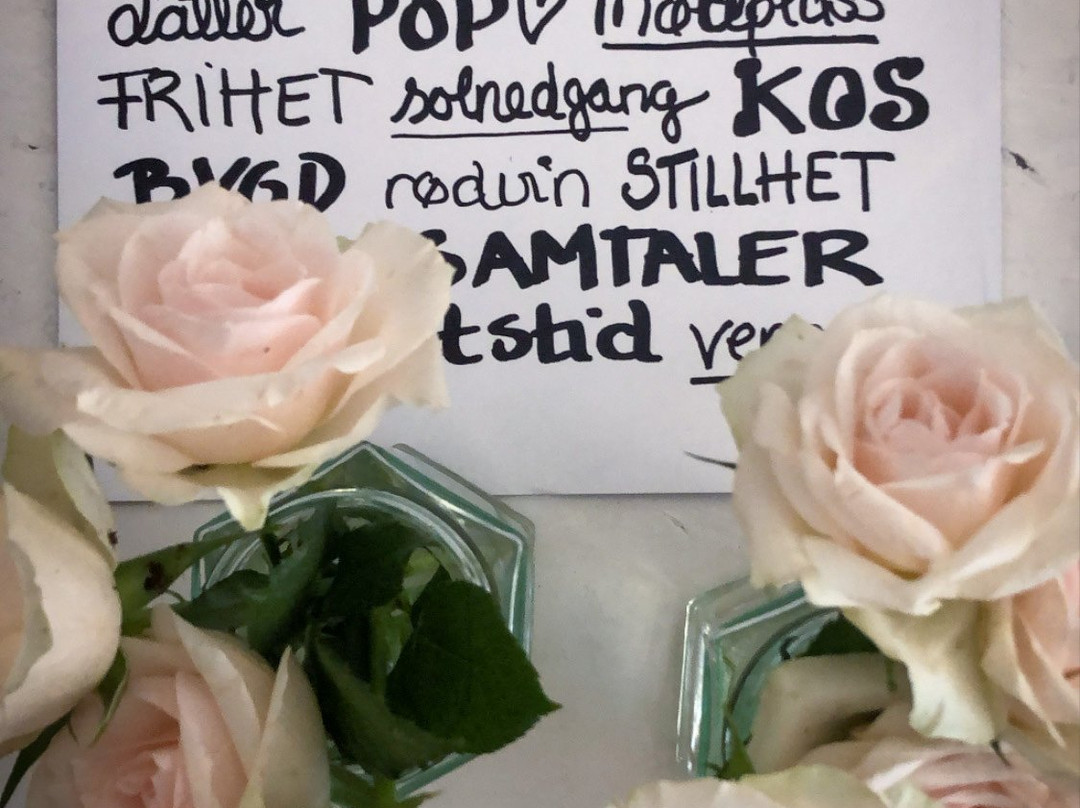 daller POP♡ møteplass
FRiHET solnedgang KOS
BYGD rødvin STILLHET
SAMTALER
tstid